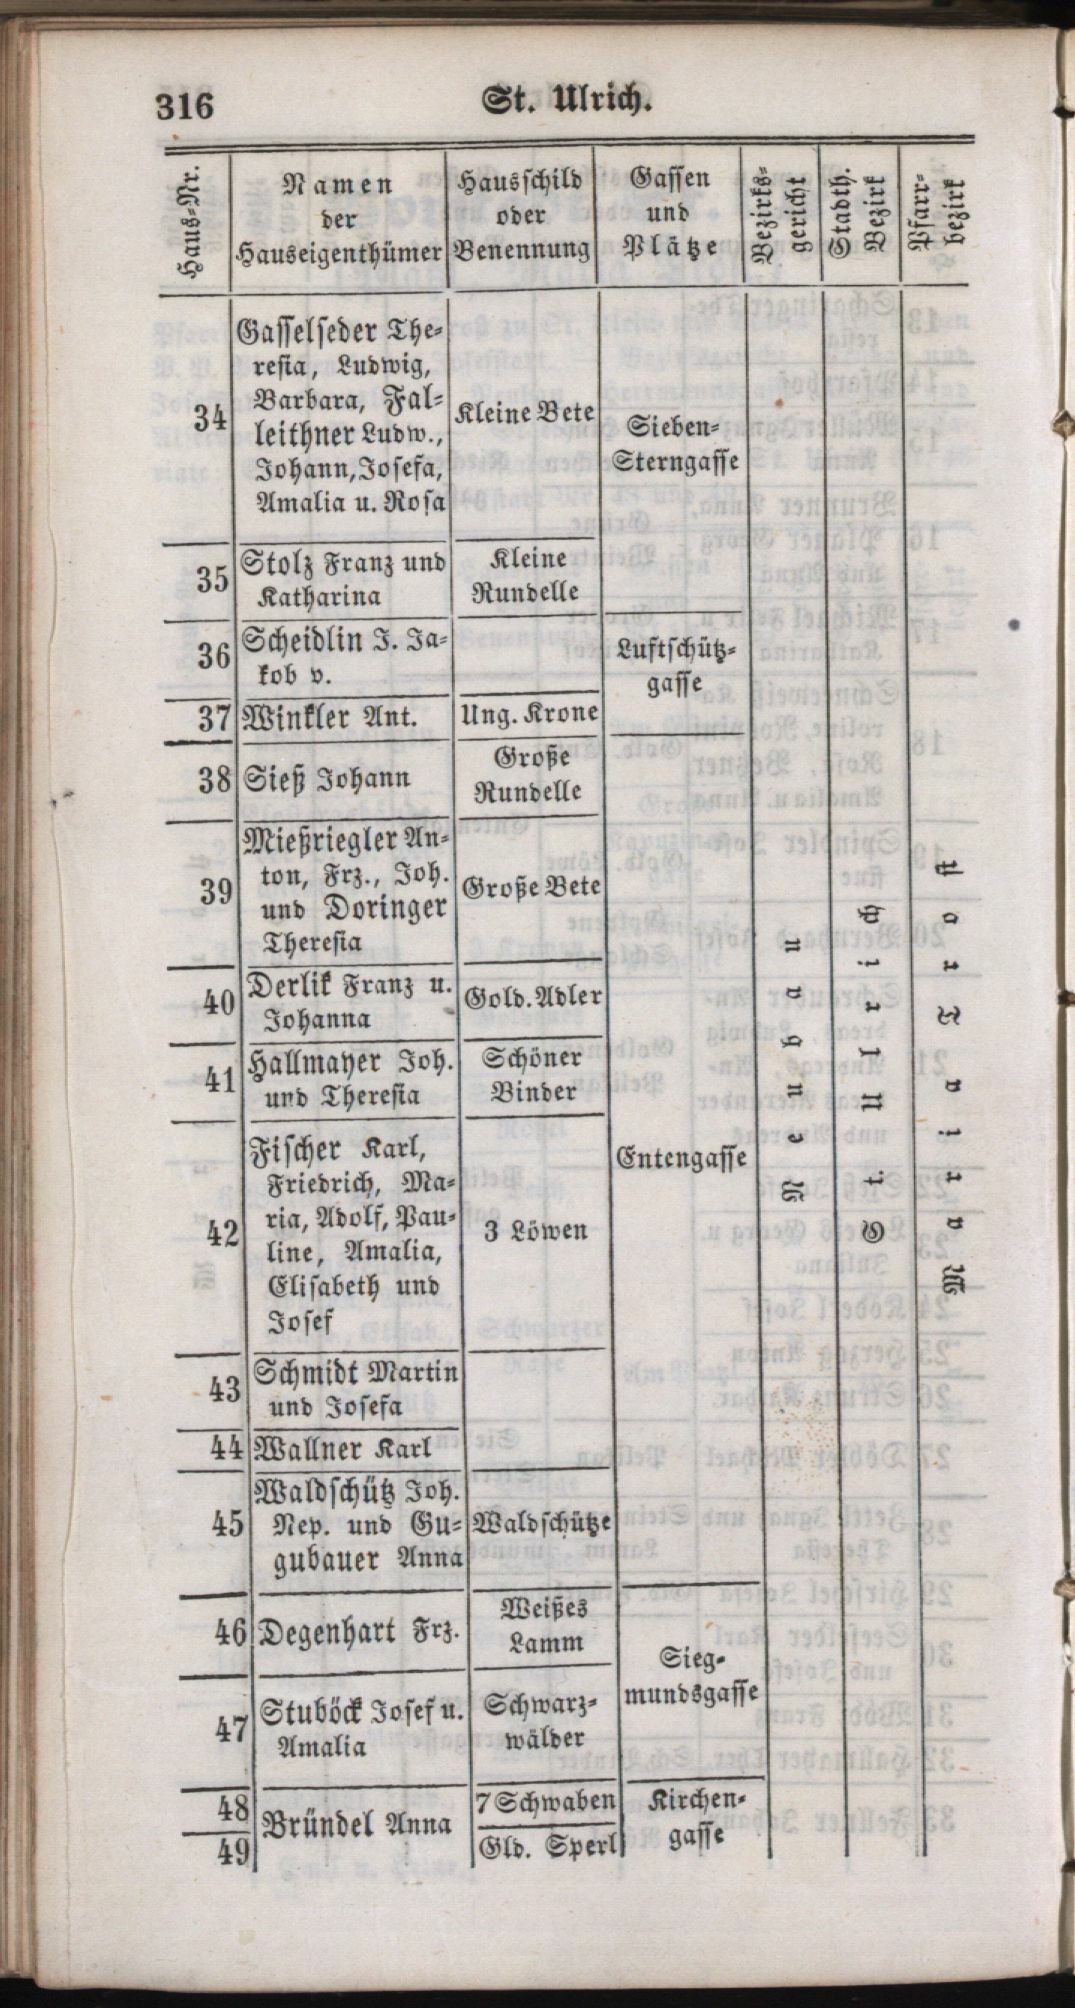 316
St. Ulrich.
Haus-Nr.
Namen
der
Hauseigenthümer
Hausschild
oder
Benennung
Gassen
und
Plätze
Bezirks-
gericht
Stadth.
Bezirk
Pfarr-
bezirk
34
Gasselseder The-
resia, Ludwig,
Barbara, Fal-
leithner Ludw.,
Johann, Josefa,
Amalia u. Rosa
Kleine Bete
Sieben-
Sterngasse
35
Stolz Franz und
Katharina
Kleine
Rundelle
36
Scheidlin J. Ja-
kob v.
Luftschütz-
gasse
37
Winkler Ant.
Ung. Krone
38
Sieß Johann
Große
Rundelle
39
Mießriegler An-
ton, Frz., Joh.
und Doringer
Theresia
Große Bete
40
Derlik Franz u.
Johanna
Gold. Adler
41
Hallmayer Joh.
und Theresia
Schöner
Binder
42
Fischer Karl,
Friedrich, Ma-
ria, Adolf, Pau-
line, Amalia,
Elisabeth und
Josef
3 Löwen
Entengasse
43
Schmidt Martin
und Josefa
44
Wallner Karl
45
Waldschütz Joh.
Nep. und Gu-
gubauer Anna
Waldschütze
46
Degenhart Frz.
Weißes
Lamm
Sieg-
mundsgasse
47
Stuböck Josef u.
Amalia
Schwarz-
wälder
48
49
Bründel Anna
7 Schwaben
Gld. Sperl
Kirchen-
gasse
Neubau
St. Ulrich
Maria Trost